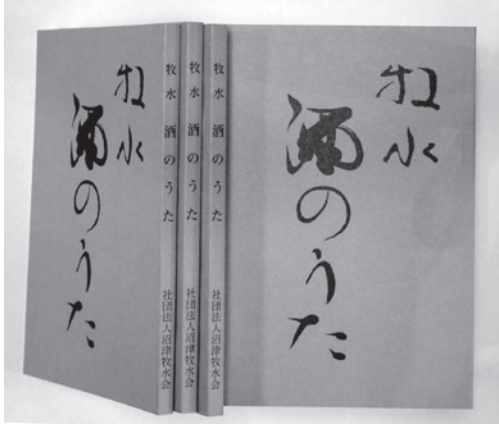 牧水
酒のうた
牧水 酒のうた 社団法人沼津牧水会
牧水 酒のうた 社団法人沼津牧水会
牧水 酒のうた 社団法人沼津牧水会
牧水
酒のうた